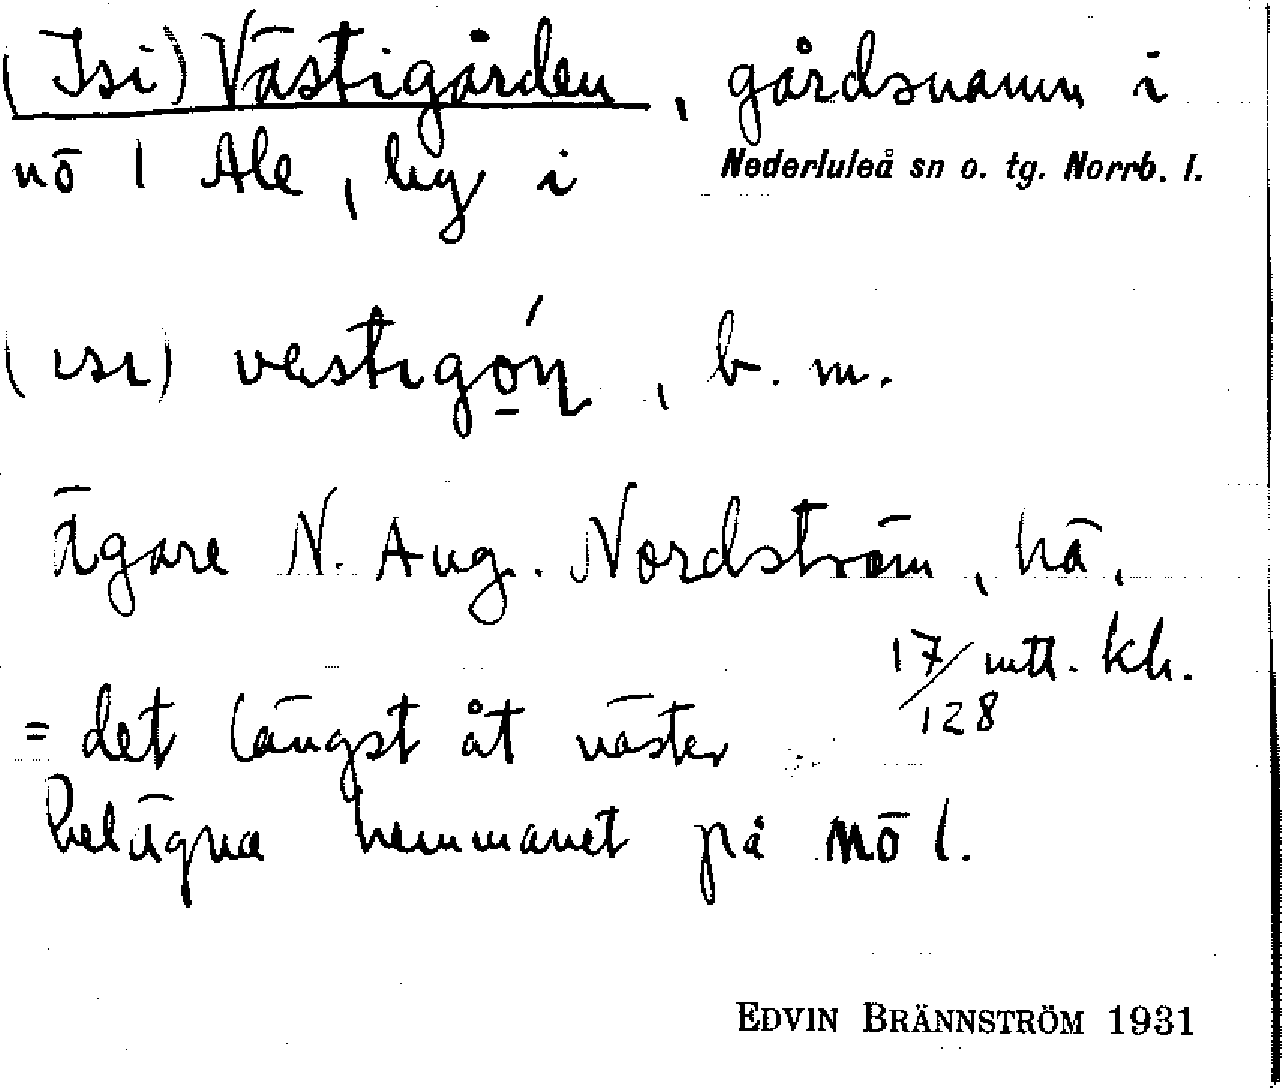 (Isi) Västigården, gårdsnamn i
nö 1 Ale, by i Nederluleå sn o. tg. Norrb. l.
(ɪsɪ) vestɪgó̱n, b. m.
ägare N. Aug. Nordström, hä.
17/128 mtl. kh.
= det längst åt väster
belägna hemmanet på nö 1.
EDVIN BRÄNNSTRÖM 1931